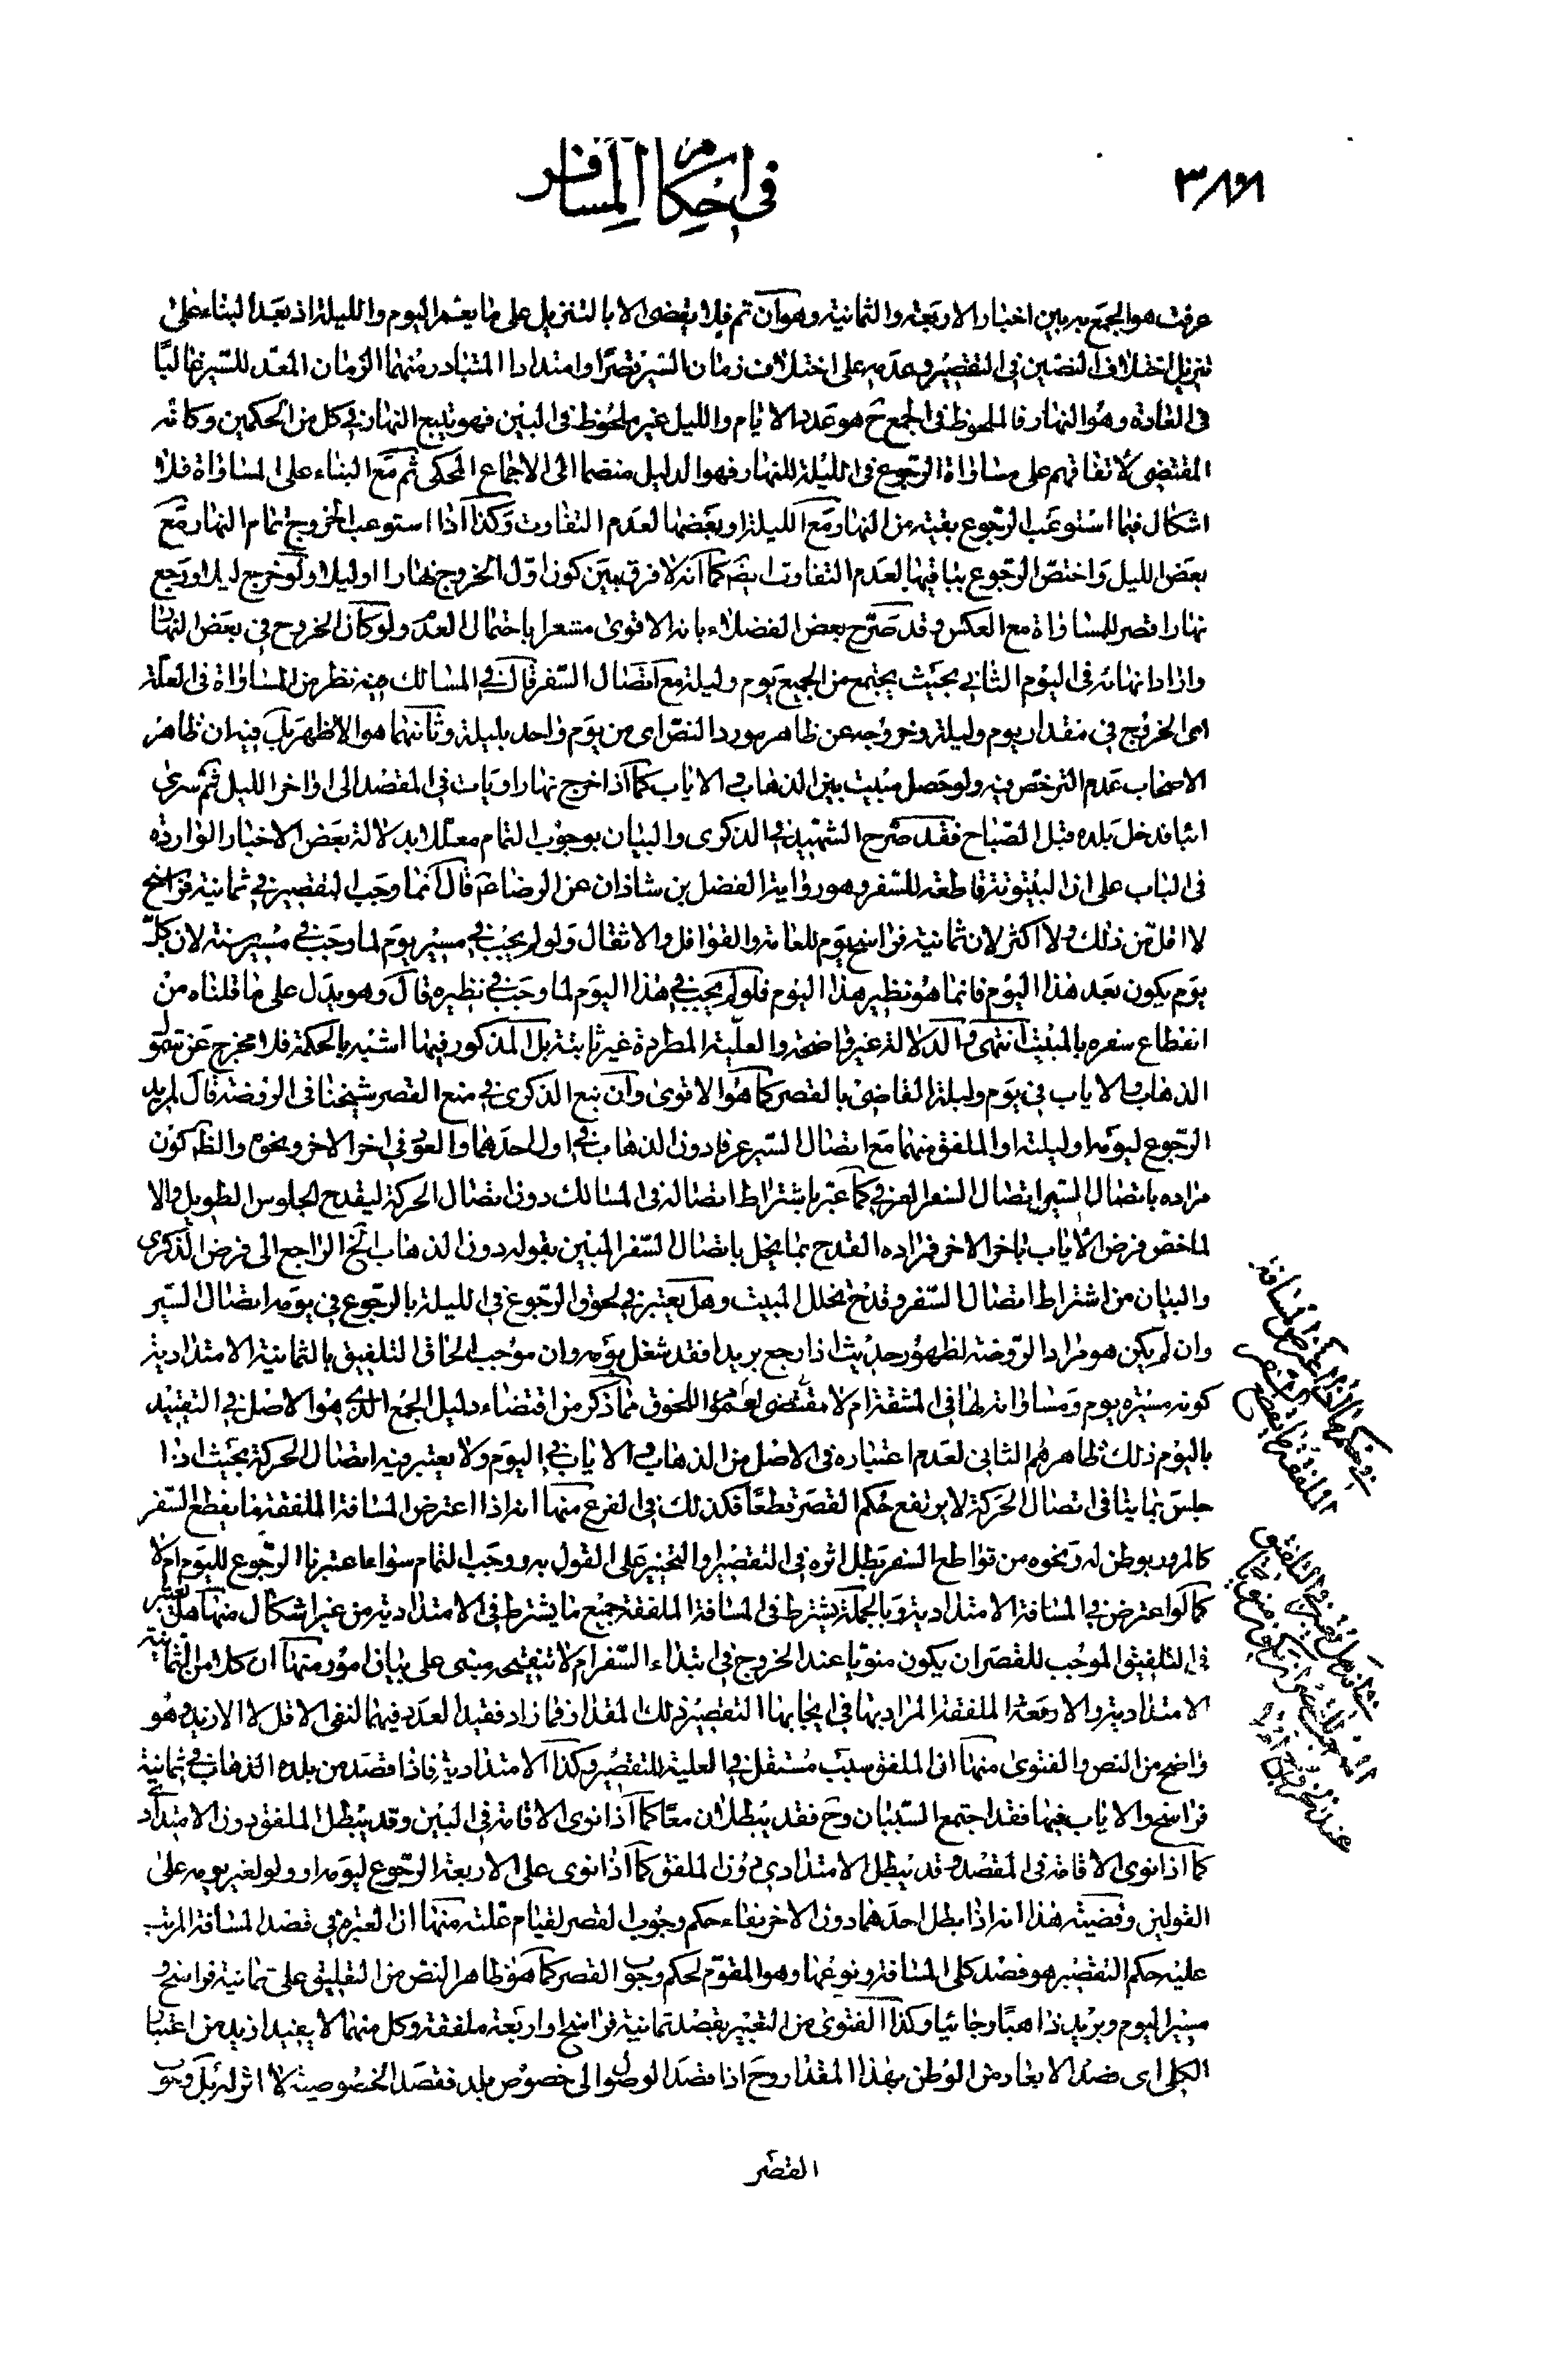 في احكام المسافر
عرفت هو الجمع به بين اخبار الاربعة والثمانية وهو ان تم فلا يقضى الا بالتنزيل على ما يعم اليوم والليلة اذ بعد البناء على
تنزيل اختلاف النصين في التقصير وعدمه على اختلاف زمان السير قصرا وامتدادا المتبادر منهما الزمان المعد للسير غالبًا
في العادة وهو النهار فالملحوظ في الجمع ح هو عدد الايام والليل غير ملحوظ في البين فهو يتبع النهار في كل من الحكمين وكانه
المقتضى لاتفاقهم على مساواة الرجوع في الليلة للنهار فهو الدليل منضما الى الاجماع المحكى ثم مع البناء على المساواة فلا
اشكال فيما استوعب الرجوع بقيته من النهار مع الليلة او بعضها لعدم التفاوت وكذا اذا استوعب الخروج تمام النهار مع
بعض الليل واختص الرجوع بباقيها لعدم التفاوت ايضم كما انه لا فرق بين كون اول الخروج نهارا او ليلا ولو خرج ليلا ورجع
نهارا قصر للمساواة مع العكس وقد صرح بعض الفضلاء بانه الاقوى مشعرا باحتمال العدم ولو كان الخروج في بعض النهار
واراد انهائه في اليوم الثاني بحيث يجتمع من الجميع يوم وليلة مع اتصال السفر قال في المسالك فيه نظر من المساواة في العلة
اى الخروج في مقدار يوم وليلة وخروجه عن ظاهر مورد النص اى من يوم واحد بليلة وثانيهما هو الاظهر بل فيه ان ظاهر
الاصحاب عدم الترخص فيه ولو حصل مبيت بين الذهاب والاياب كما اذا خرج نهارا وبات في المقصد الى اواخر الليل ثم سرى
ائبا فدخل بلده قبل الصباح فقد صرح الشهيد في الذكرى والبيان بوجوب التمام معللا بدلالة بعض الاخبار الواردة
في الباب على ان البيتوتة قاطعة للسفر وهو رواية الفضل بن شاذان عن الرضا عم قال انما وجب التقصير في ثمانية فراسخ
لا اقل من ذلك ولا اكثر لان ثمانية فراسخ يوم للعامة والقوافل والاثقال ولو لم يجب في مسير يوم لما وجب في مسير سنة لان كل
يوم يكون بعد هذا اليوم فانما هو نظير هذا اليوم فلو لم يجب في هذا اليوم لما وجب في نظيره قال وهو يدل على ما قلناه من
انقطاع سفره بالمبيت انتهى والدلالة غير واضحة والعلية المطردة غير ثابتة بل المذكور فيها اشبه بالحكمة فلا مخرج عن
الذهاب والاياب في يوم وليلة القاضى بالقصر كما هو الاقوى وان تبع الذكرى في منع القصر شيخنا في الروضة قال لمريد
الرجوع ليومه او ليلته او الملفق منهما مع اتصال السير عرفا دون الذهاب في اول احدهما والعود في اخر الاخر ونحوه والظم كون
مراده باتصال السير اتصال السفر العرفي كما عبر باشتراط اتصاله في المسالك دون اتصال الحركة ليقدح الجلوس الطويل والا
لما خص فرض الاياب باخر الاخر فمراده القدح بما يخل باتصال السفر المبين بقوله دون الذهاب الخ الراجع الى فرض الذكرى
والبيان من اشتراط اتصال السفر وقدح تخلل المبيت وهل يعتبر في لحوق الرجوع في الليلة بالرجوع في يومه اتصال السير
وان لم يكن هو مراد الروضة لظهور حديث اذا رجع بريدا فقد شغل يومه وان موجب الحاق التلفيق بالثمانية الامتدادية
كونه مسيرة يوم ومساواته لها في المشقة ام لا مقتضى لعموم اللحوق مما ذكر من اقتضاء دليل الجمع الذى هو الاصل في التقييد
باليوم ذلك ظاهرهم الثاني لعدم اعتباره في الاصل من الذهاب والاياب في اليوم ولا يعتبر فيه اتصال الحركة بحيث اذا
جلس بما ينافي اتصال الحركة لا يرتفع حكم القصر قطعًا فكذلك في الفرع منها انه اذا اعترض المسافة الملفقة ما يقطع السفر
كالمرور بوطن له ونحوه من قواطع السفر بطل اثره في التقصير او التخيير على القول به ووجب التمام سواء اعتبرنا الرجوع لليوم ام لا
كما لو اعترض في المسافة الامتدادية وبالجملة يشترط في المسافة الملفقة جميع ما يشترط في الامتدادية من غير اشكال منها هل يعتبر
في التلفيق الموجب للقصر ان يكون منويا عند الخروج في ابتداء السفر ام لا تنقيحه مبنى على بيان امور منها ان كلا من الثمانية
الامتدادية والاربعة الملفقة المراد بها في ايجابها التقصير ذلك المقدار فما زاد فقيد العدد فيهما لنفى الاقل لا الازيد وهو
واضح من النص والفتوى منها ان الملفق سبب مستقل في العلية للتقصير وكذا الامتدادية فاذا قصد من بلده الذهاب في ثمانية
فراسخ والاياب فيها فقد اجتمع السببان وح فقد يبطلان معًا كما اذا نوى الاقامة في البين وقد يبطل الملفق دون الامتداد
كما اذا نوى الاقامة في المقصد وقد يبطل الامتدادي دون الملفق كما اذا نوى على الاربعة الرجوع ليومه او ولو لغير يومه على
القولين وقضيته هذا انه اذا بطل احدهما دون الاخر بقاء حكم وجوب القصر لقيام علته منها ان العبرة في قصد المسافة المرتب
عليه حكم التقصير هو قصد كلى المسافة ونوعها وهو المقوم لحكم وجوب القصر كما هو ظاهر النص من التعليق على ثمانية فراسخ و
مسير اليوم وبريد ذاهبًا وجائيا وكذا الفتوى من التعبير بقصد ثمانية فراسخ او اربعة ملفقة وكل منهما لا يفيد ازيد من اعتبار
الكلى اى قصد الابعاد من الوطن بهذا المقدار وح اذا قصد الوصول الى خصوص بلد فقصد الخصوصية لا اثر له بل وجوب
القصر